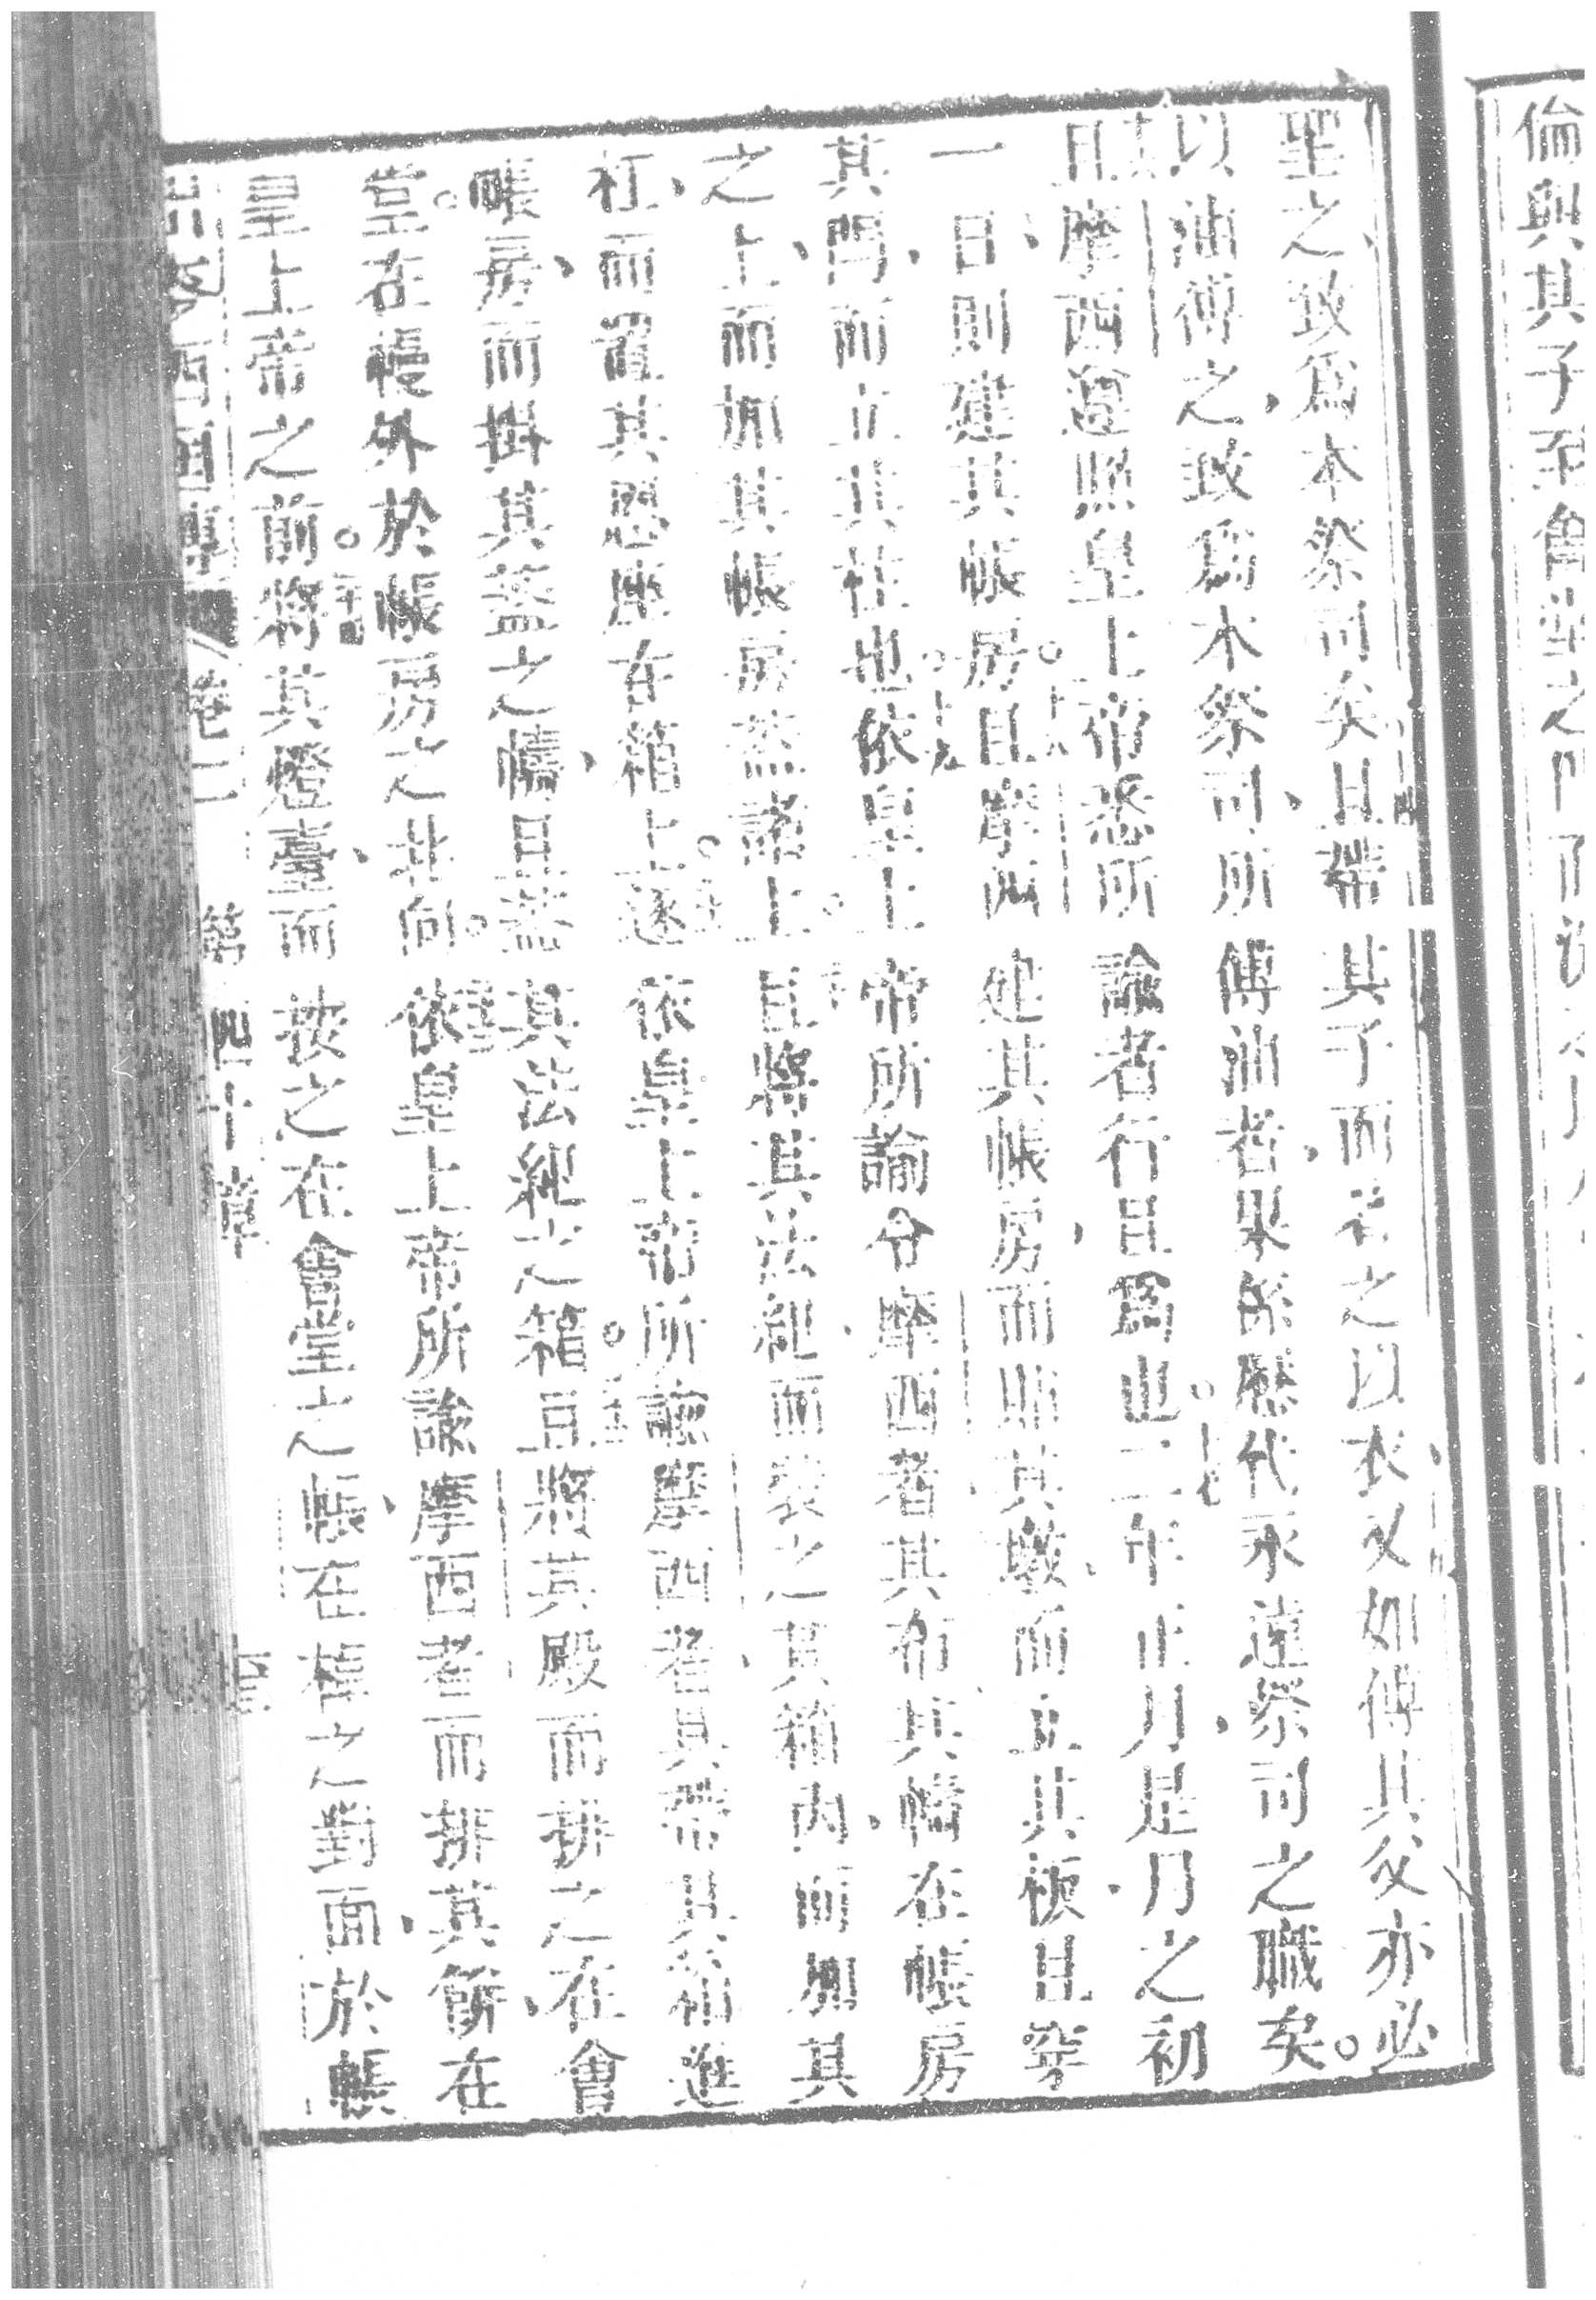 倫與其子至會堂之門而洗
聖之致爲本祭司矣且帶其子而着之以衣又如傅其父亦必
以油傅之致爲本祭司所傅油者果係歷代永遠祭司之職矣
且摩西遵照皇上帝悉所諭者行且爲也二年正月是月之初
一日則建其帳房且摩西建其帳房而置其墩而立其板且穿
其閂而立其柱也依皇上帝所諭令摩西者其布其幬在帳房
之上而加其帳房蓋諸上且將其法紀而裝之其箱內而加其
杠而置其恩座在箱上遂依皇上帝所諭摩西者且帶其箱進
帳房而掛其蓋之幬且蓋其法紀之箱且將其殿而排之在會
堂在幔外於帳房之北向依皇上帝所諭摩西者而排其餅在
皇上帝之前將其燈臺而按之在會堂之帳在棹之對面於帳
卷二 第四十章